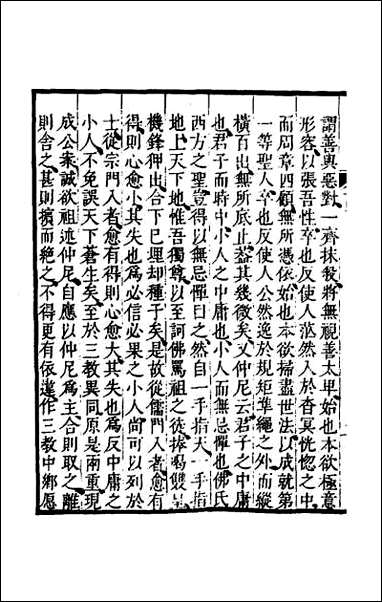 謂善與惡對一齊抹摋將無視善太卑始也本欲極意
形容以張吾性卒也反使人茫然入於杳冥恍惚之中
而周章四顧無所憑依始也本欲掃盡世法以成就第
一等聖人卒也反使人公然逸於規矩準繩之外而縱
橫百出無所底止葢其幾微矣又仲尼云君子之中庸
也君子而時中小人之中庸也小人而無忌憚也佛氏
西方之聖豈得以無忌憚目之然自一手指天一手指
地上天下地惟吾獨尊以至訶佛罵祖之徒捧喝雙呈
機鋒狎出合下已埋却種子矣是故從儒門入者愈有
得則心愈小其失也為必信必果之小人尚可以列於
士從宗門入者愈有得則心愈大其失也為反中庸之
小人不免誤天下蒼生矣至於三教異同原是兩重現
成公案誠欲祖述仲尼自應以仲尼為主合則取之離
則舍之甚則擯而絕之不得更有依違作三教中鄉愿